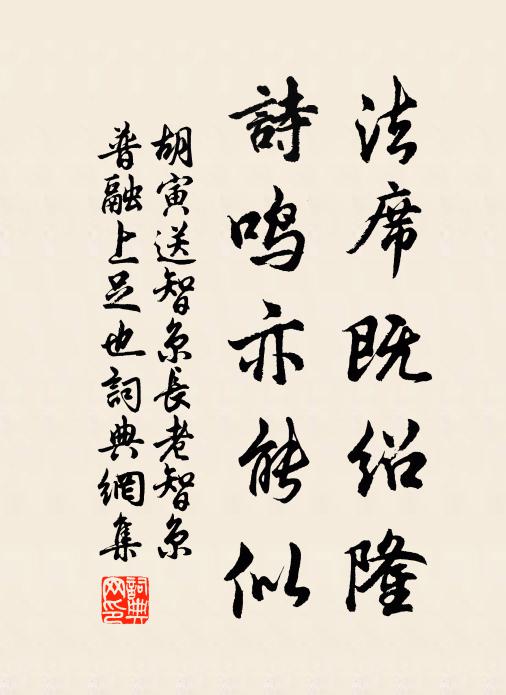 法席既绍隆
詩鸣亦能似
胡寅送智京長老智京
普融上足也詞典網集
詞典网印